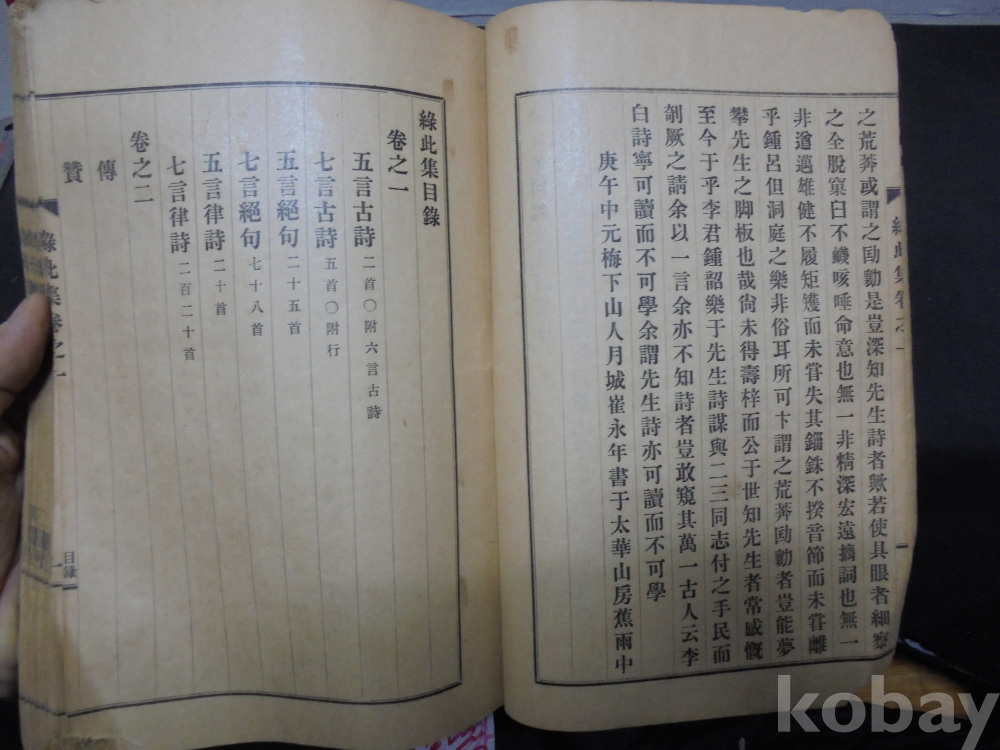 之荒莽或謂之勁是豈深知先生詩者歟若使具眼者細察
之全脫窠臼不襲咳唾命意也無一非精深宏遠摛詞也無一
非遒邁雄健不履矩矱而未甞失其錙銖不揆音節而未甞離
乎鍾呂但洞庭之樂非俗耳所可卞謂之荒莽勁者豈能夢
攀先生之脚板也哉尙未得壽梓而公于世知先生者常慼慨
至今于乎李君鍾韶樂于先生詩謀與二三同志付之手民而
剞厥之請余以一言余亦不知詩者豈敢窺其萬一古人云李
白詩寧可讀而不可學余謂先生詩亦可讀而不可學
庚午中元梅下山人月城崔永年書于太華山房蕉雨中
綠此集卷之一
綠此集目錄
卷之一
五言古詩 二首〇附六言古詩
七言古詩 五首〇附行
五言絕句 二十五首
七言絕句 七十八首
五言律詩 二十首
七言律詩 二百二十首
卷之二
傳
贊
綠此集卷之一
目錄
一
kobay